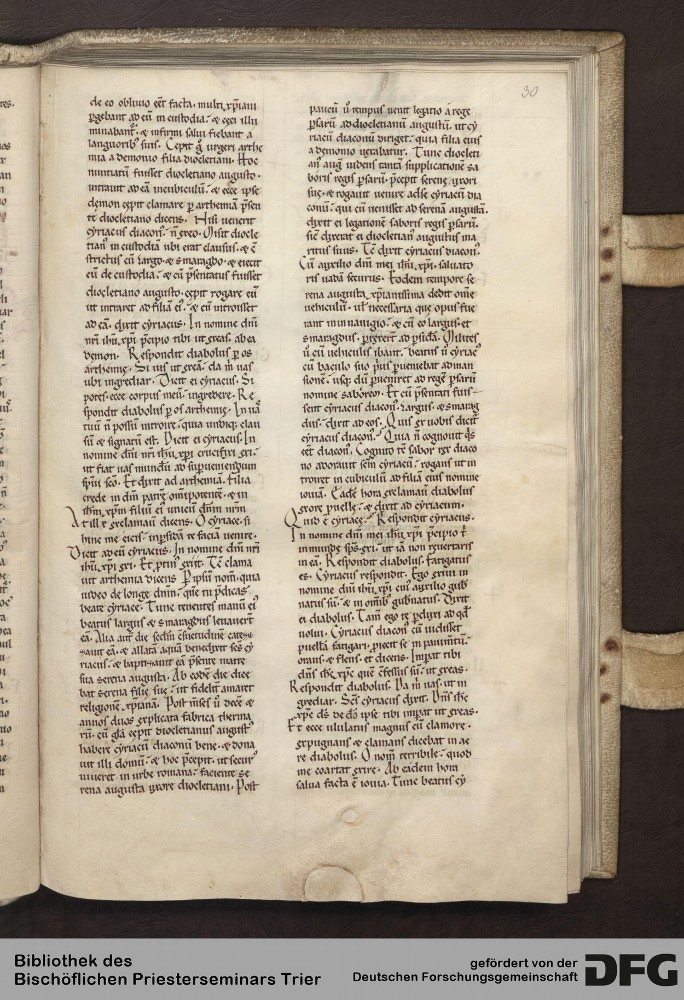 de eo obliuio eēt facta. multi xp̄iani
ꝑgebant ad eū in custodia. & ceci illu
minabant̄. & infirmi salui fiebant a
languorib; suis. Cepit g̊ urgeri arthe
mia a demonio filia diocletiani. Hoc
nuntiatū fuisset diocletiano augusto.
intrauit ad eā incubiculū. & ecce ipse
demon cepit clamare ꝑ arthemiā p̄sen
te diocletiano dicens. Nisi uenerit
cyriacus diacon̄. n̄ exeo. Misit diocle
tian̄ in custodiā ubi erat clausus. & ē
strictus cū largo. & smaragdo. & eiecit
eū de custodia. & cū p̄sentatus fuisset
diocletiano augusto. cepit rogare eū
ut intraret ad filiā ei. & cū introisset
ad eā. dixit cyriacus. In nomine dn̄i
nr̄i ih̄u xp̄i p̄cipio tibi ut exeas. ab ea
demon. Respondit diabolus ꝑ os
arthemie. Si uis ut exeā. da m̄ uas
ubi ingrediar. Dicit ei cyriacus. Si
potes. ecce corpus meū. ingredere. Re
spondit diabolus ꝑ os arthemie. In uā
tuū n̄ possū introire. quia undiq; clau
sū & signatū est. Dicit ei cyriacus. In
nomine dn̄i nr̄i ih̄u xp̄i crucifixi exi.
ut fiat uas mundū ad sup̱ueniendum
sp̄ui sc̄o. Et dixit ad arthemiā. Filia
crede in dm̄ patrē om̄ipotentē. & in
ih̄m xp̄m filiū ei unicū dn̄m nr̄m
At ille exclamauit dicens. O cyriace. si
hinc me eicis. in ꝑsidā te faciā uenire.
Dicit ad eū cyriacus. In nomine dn̄i nr̄i
ih̄u xp̄i exi. Et ptin' exiit. Tc̄ clama
uit arthemia dicens. P ipsiū nom̄. quia
uideo de longe dn̄m. quē tu p̄dicas
beate cyriace. Tunc tenentes manū ei
beatus largus & smaragdus leuauert̄
eā. Alia aut̄ die scd̄m c̄suetudinē cathe
zauit eā. & allata aqua benedixit sc̄s cy
riacus. & baptizauit eā p̄sente matre
sua serena augusta. Ab eode die dice
bat serena filie sue. ut fidelit̄ amaret
religionē xp̄ianā. Post m̄ses ū decē &
annos duos explicata fabrica therma
rū. cū gl̄a cepit diocletianus august'
habere cyriacū diaconū bene. & dona
uit illi domū. & hoc p̄cepit. ut secur'
uiueret in urbe romana. faciente se
rena augusta uxore diocletiani. Post
30
paucū ū tempus uenit legatio a rege
ꝑsarū ad diocletianū augustū. ut cy
riacū diaconū diriget. quia filia eius
a demonio uexabatur. Tunc diocleti
an' aug' uidens tantā supplicationē sa
boris regis ꝑsarū. p̄cepit serene uxori
sue. & rogauit uenire ad se cyriacū dia
conū. qui cū uenisset ad serenā augustā.
dixit ei legationē saboris regis ꝑsarū.
sic̄ dixerat ei diocletian' augustus ma
ritus suus. Tc̄ dixit cyriacus diacon̄.
Cū auxilio dn̄i mei ih̄u xp̄i. saluato
ris uadā securus. Eodem tempore se
rena augusta xp̄ianissima dedit om̄e
uehiculū. ut necessaria que opus fue
rant in nauigio. & cū eo largus. et
smaragdus. ꝑrexert̄ ad ꝑsidā. Milites
ū cū uehiculis ibant. beatus ū cyriac'
cū baculo suo p̄us ꝑueniebat ad man
sionē. usq; dū ꝑuenirēt ad regē ꝑsarū
nomine saboreo. Et cū p̄sentati fuis
sent cyriacus diacon̄. largus. & smarag
dus. dixit ad eos. Quis ex uobis dicit̄
cyriacus diacon̄. Quia n̄ cognouit q̄s
eēt diacon̄. Cognito tc̄ sabor rex diaco
no adorauit sc̄m cyriacū. rogans ut in
troiret in cubiculū ad filiā eius nomine
iouiā. Eadē hora exclamauit diabolus
ex ore puelle. & dixit ad cyriacum.
Quid ē cyriace. Respondit cyriacus.
In nomine dn̄i mei ih̄u xp̄i p̄cipio t'
inmunde sp̄s exi. ut iā non reuertaris
in eā. Respondit diabolus. Fatigatus
es. Cyriacus respondit. Ego exiui in
nomine dn̄i ih̄u xp̄i cui' auxilio gub̄
natus sū. & in om̄ib; gub̄natus. Dixit
ei diabolus. Tam̄ ego te ꝑduxi ad qd̄
uolui. Cyriacus diacon' cū uidisset
puellā fatigari. ꝓiecit se in pauim̄tū.
orans. & flens. et dicens. Imꝑat tibi
dn̄s ih̄c xp̄c que c̄fessus sū. ut exeas.
Respondit diabolus. Da m̄ uas. ut in
grediar. Sc̄s cyriacus dixit. Dn̄s ih̄c
xp̄c d̄s de d̄o ipse tibi imꝑat ut exeas.
Et ecce ululatus magnus cū clamore.
expugnans & clamans dicebat in ae
re diabolus. O nom̄ terribile. quod
me coartat exire. Ab eadem hora
salua facta ē iouia. Tunc beatus cy
Bibliothek des
Bischöflichen Priesterseminars Trier
gefördert von der
Deutschen Forschungsgemeinschaft
DFG